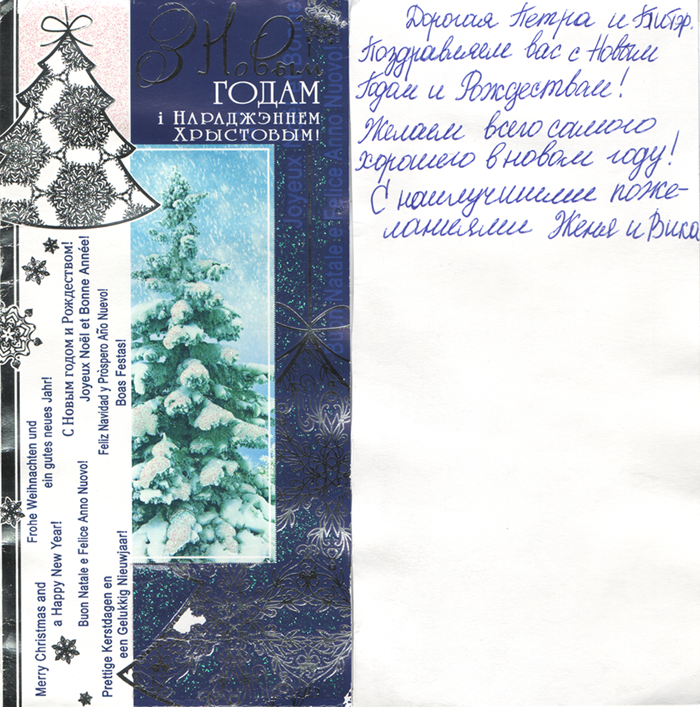 З Новым
ГОДАМ
і НАРАДЖЭННЕМ
ХРЫСТОВЫМ!
Joyeux Bonne
Joyeux
Natale e Felice Anno Nuovo!
С Новым годом и Рождеством!
Joyeux Noël et Bonne Année!
Feliz Navidad y Próspero Año Nuevo!
Boas Festas!
Frohe Weihnachten und
ein gutes neues Jahr!
Merry Christmas and
a Happy New Year!
Buon Natale e Felice Anno Nuovo!
Prettige Kerstdagen en
een Gelukkig Nieuwjaar!
Дорогая Петра и
Поздравляем вас с Новым
Годам и Рождествам!
Желаем всего самого
хорошего в новом году!
С наилучшими поже-
ланиями Женя и Вика